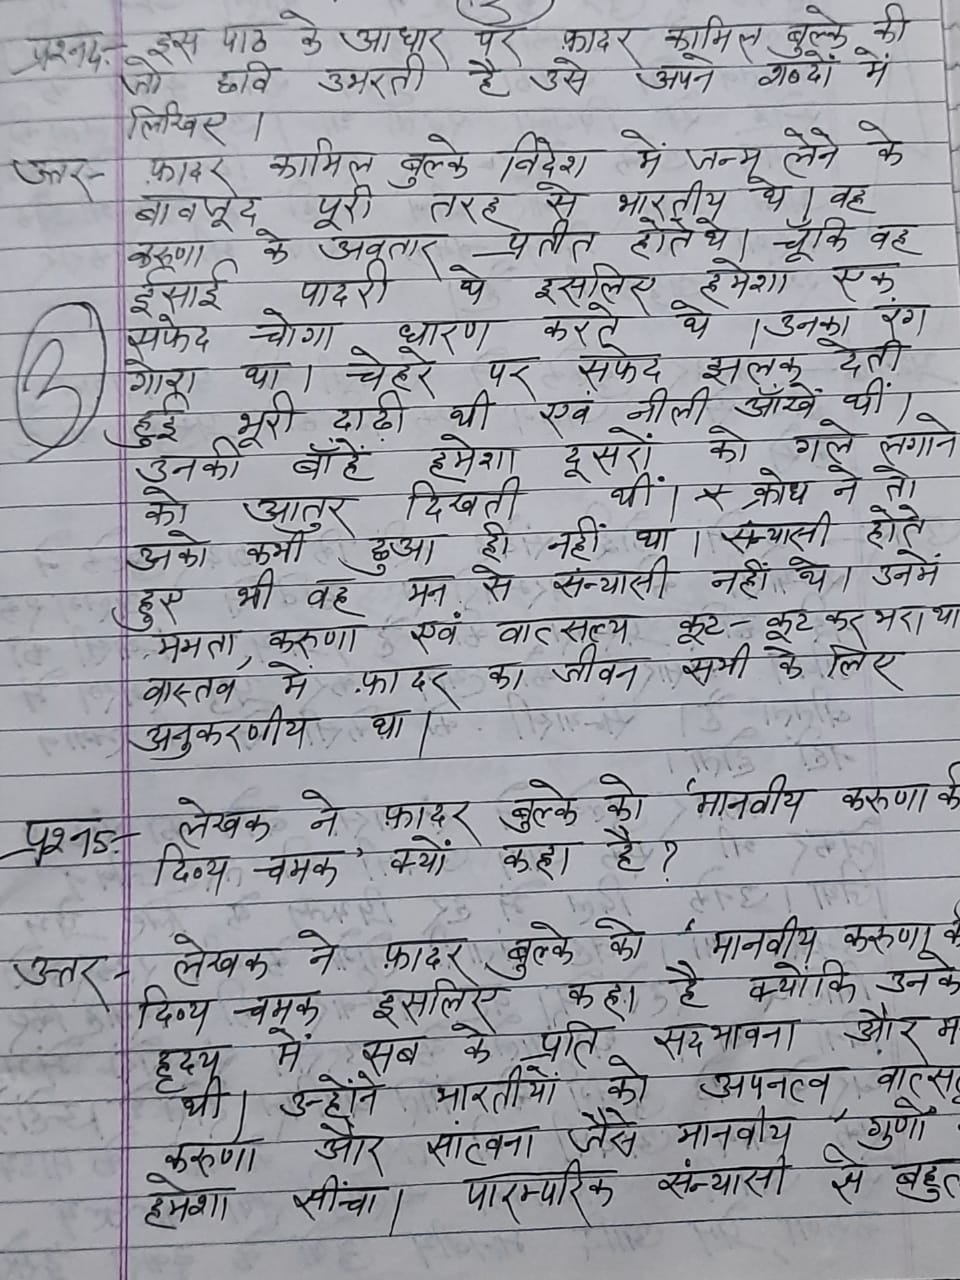 3
प्रश्न4.- इस पाठ के आधार पर फ़ादर कामिल बुल्के की
जो छवि उभरती है उसे अपने शब्दों में
लिखिए ।
उत्तर- फ़ादर कामिल बुल्के विदेश में जन्म लेने के
बावजूद पूरी तरह से भारतीय थे। वह
करुणा के अवतार प्रतीत होते थे। चूँकि वह
ईसाई पादरी थे इसलिए हमेशा एक
सफेद चोगा धारण करते थे । उनका रंग
गोरा था। चेहरे पर सफेद झलक देती
हुई भूरी दाढ़ी थी एवं नीली आँखें थीं।
उनकी बाँहें हमेशा दूसरों को गले लगाने
को आतुर दिखती थीं। क्रोध ने तो
उनको कभी छुआ ही नहीं था । संन्यासी होते
हुए भी वह मन से संन्यासी नहीं थे। उनमें
ममता, करुणा एवं वात्सल्य कूट-कूट कर भरा था
वास्तव में फ़ादर का जीवन सभी के लिए
अनुकरणीय था।
3
प्रश्न5- लेखक ने फ़ादर बुल्के को 'मानवीय करुणा की
दिव्य चमक' क्यों कहा है ?
उत्तर- लेखक ने फ़ादर बुल्के को 'मानवीय करुणा की
दिव्य चमक इसलिए कहा है क्योंकि उनके
हृदय में सब के प्रति सदभावना और
थी। उन्होंने भारतीयों को अपनत्व
करुणा और सांत्वना जैसे मानवीय गुणों
हमेशा सींचा। पारम्परिक संन्यासी से बहुत